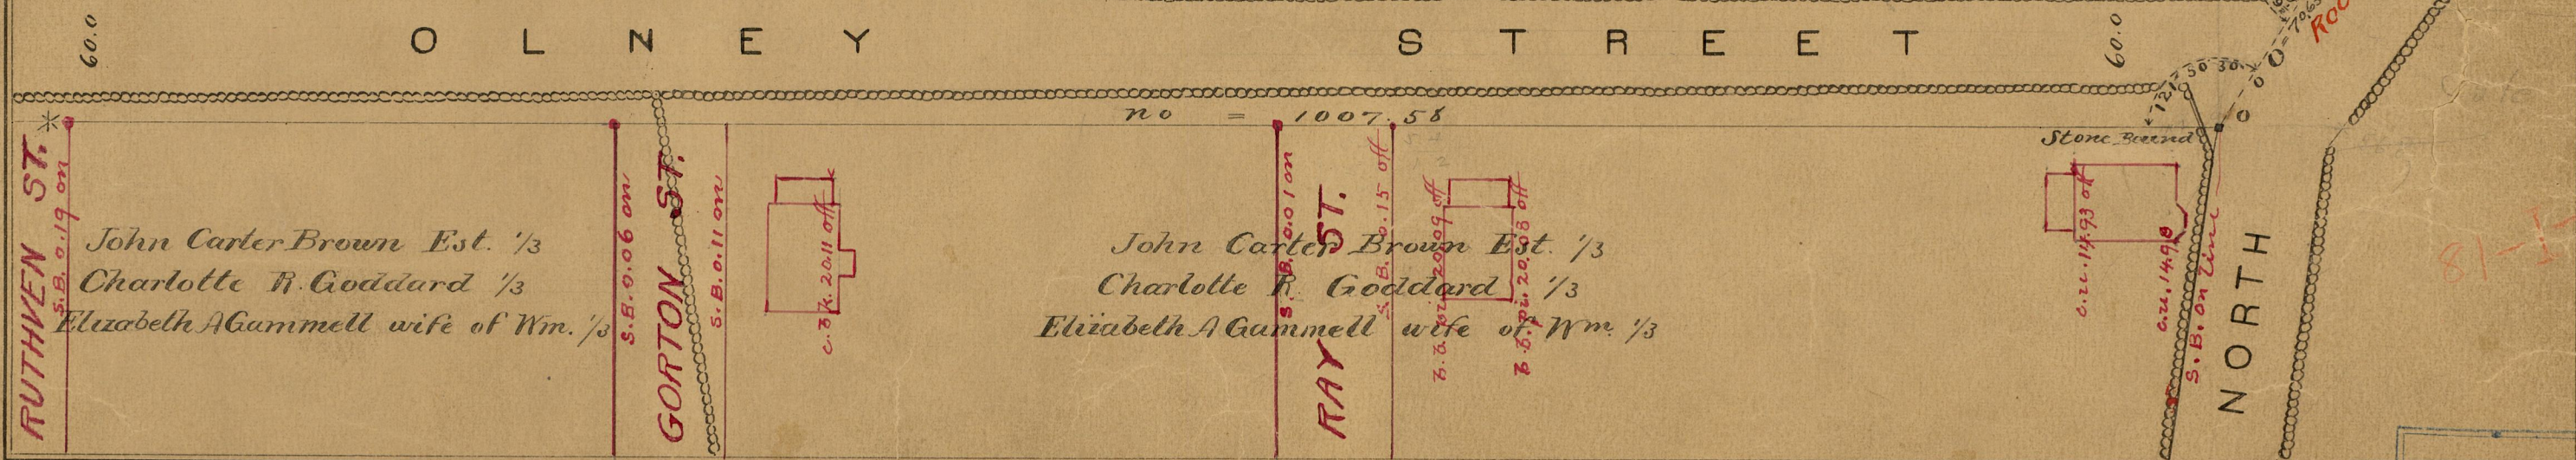 60.0
OLNEY STREET
60.0
70.63
ROC
121° 50' 30"
no = 1007.58
Stone Bound
RUTHVEN ST.
S.B. 0.19 on
John Carter Brown Est. 1/3
Charlotte R. Goddard 1/3
Elizabeth A Gammell wife of Wm. 1/3
S.B. 0.06 on
GORTON ST.
S.B. 0.11 on
c.bk. 20.11 off
John Carter Brown Est. 1/3
Charlotte R. Goddard 1/3
Elizabeth A Gammell wife of Wm. 1/3
S.B. 0.01 on
RAY ST.
S.B. 0.15 off
b.b.pi. 20.09 off
b.b.pi. 20.08 off
c.u. 14.93 off
c.u. 14.98
S.B. on Line
NORTH